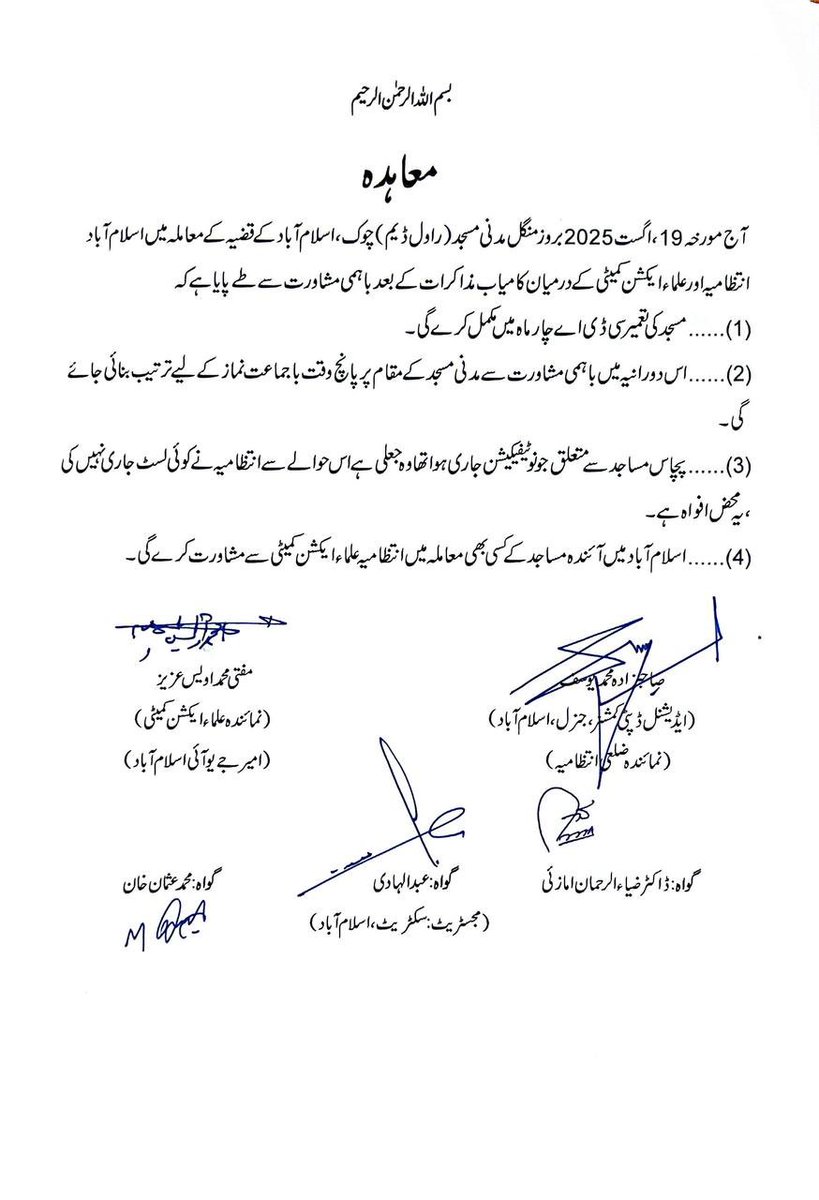 بسم اللہ الرحمٰن الرحیم
معاہدہ
آج مورخہ 19، اگست 2025 بروز منگل مدنی مسجد (راول ڈیم) چوک، اسلام آباد کے قضیہ کے معاملہ میں اسلام آباد
انتظامیہ اور علماء ایکشن کمیٹی کے درمیان کامیاب مذاکرات کے بعد باہمی مشاورت سے طے پایا ہے کہ
(1)...... مسجد کی تعمیر سی ڈی اے چار ماہ میں مکمل کرے گی۔
(2)...... اس دورانیہ میں باہمی مشاورت سے مدنی مسجد کے مقام پر پانچ وقت باجماعت نماز کے لیے ترتیب بنائی جائے
گی۔
(3)...... پچاس مساجد سے متعلق جو نوٹیفیکیشن جاری ہوا تھا وہ جعلی ہے اس حوالے سے انتظامیہ نے کوئی لسٹ جاری نہیں کی
، یہ محض افواہ ہے۔
(4)...... اسلام آباد میں آئندہ مساجد کے کسی بھی معاملہ میں انتظامیہ علماء ایکشن کمیٹی سے مشاورت کرے گی۔
صاحبزادہ محمد یوسف
مفتی محمد اویس عزیز
(ایڈیشنل ڈپٹی کمشنر، جنرل، اسلام آباد)
(نمائندہ علماء ایکشن کمیٹی)
(نمائندہ ضلعی انتظامیہ)
(امیر جے یو آئی اسلام آباد)
گواہ: ڈاکٹر ضیاء الرحمان امازئی
گواہ: عبدالہادی
گواہ: محمد عثمان خان
(مجسٹریٹ: سکٹریٹ، اسلام آباد)